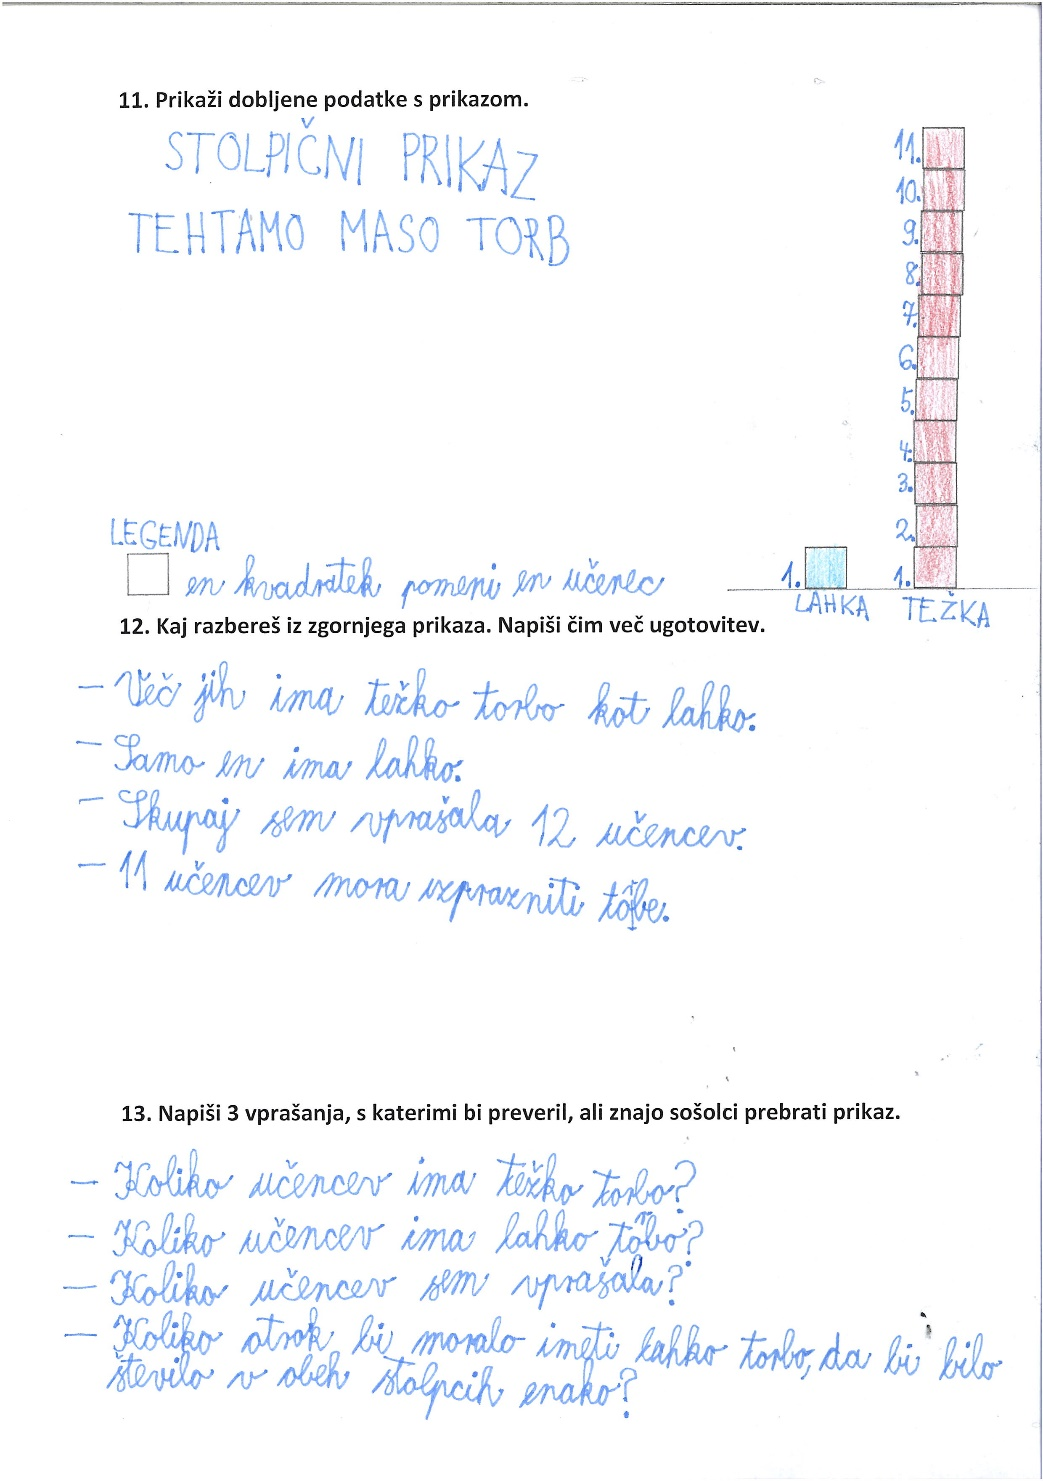 11. Prikaži dobljene podatke s prikazom.
STOLPIČNI PRIKAZ
TEHTAMO MASO TORB
11.
10.
9.
8.
7.
6.
5.
4.
3.
2.
1. 1.
LAHKA TEŽKA
LEGENDA
en kvadratek pomeni en učenec
12. Kaj razbereš iz zgornjega prikaza. Napiši čim več ugotovitev.
– Več jih ima težko torbo kot lahko.
– Samo en ima lahko.
– Skupaj sem vprašala 12 učencev.
– 11 učencev mora izprazniti torbe.
13. Napiši 3 vprašanja, s katerimi bi preveril, ali znajo sošolci prebrati prikaz.
– Koliko učencev ima težko torbo?
– Koliko učencev ima lahko torbo?
– Koliko učencev sem vprašala?
– Koliko otrok bi moralo imeti lahko torbo, da bi bilo
število v obeh stolpcih enako?